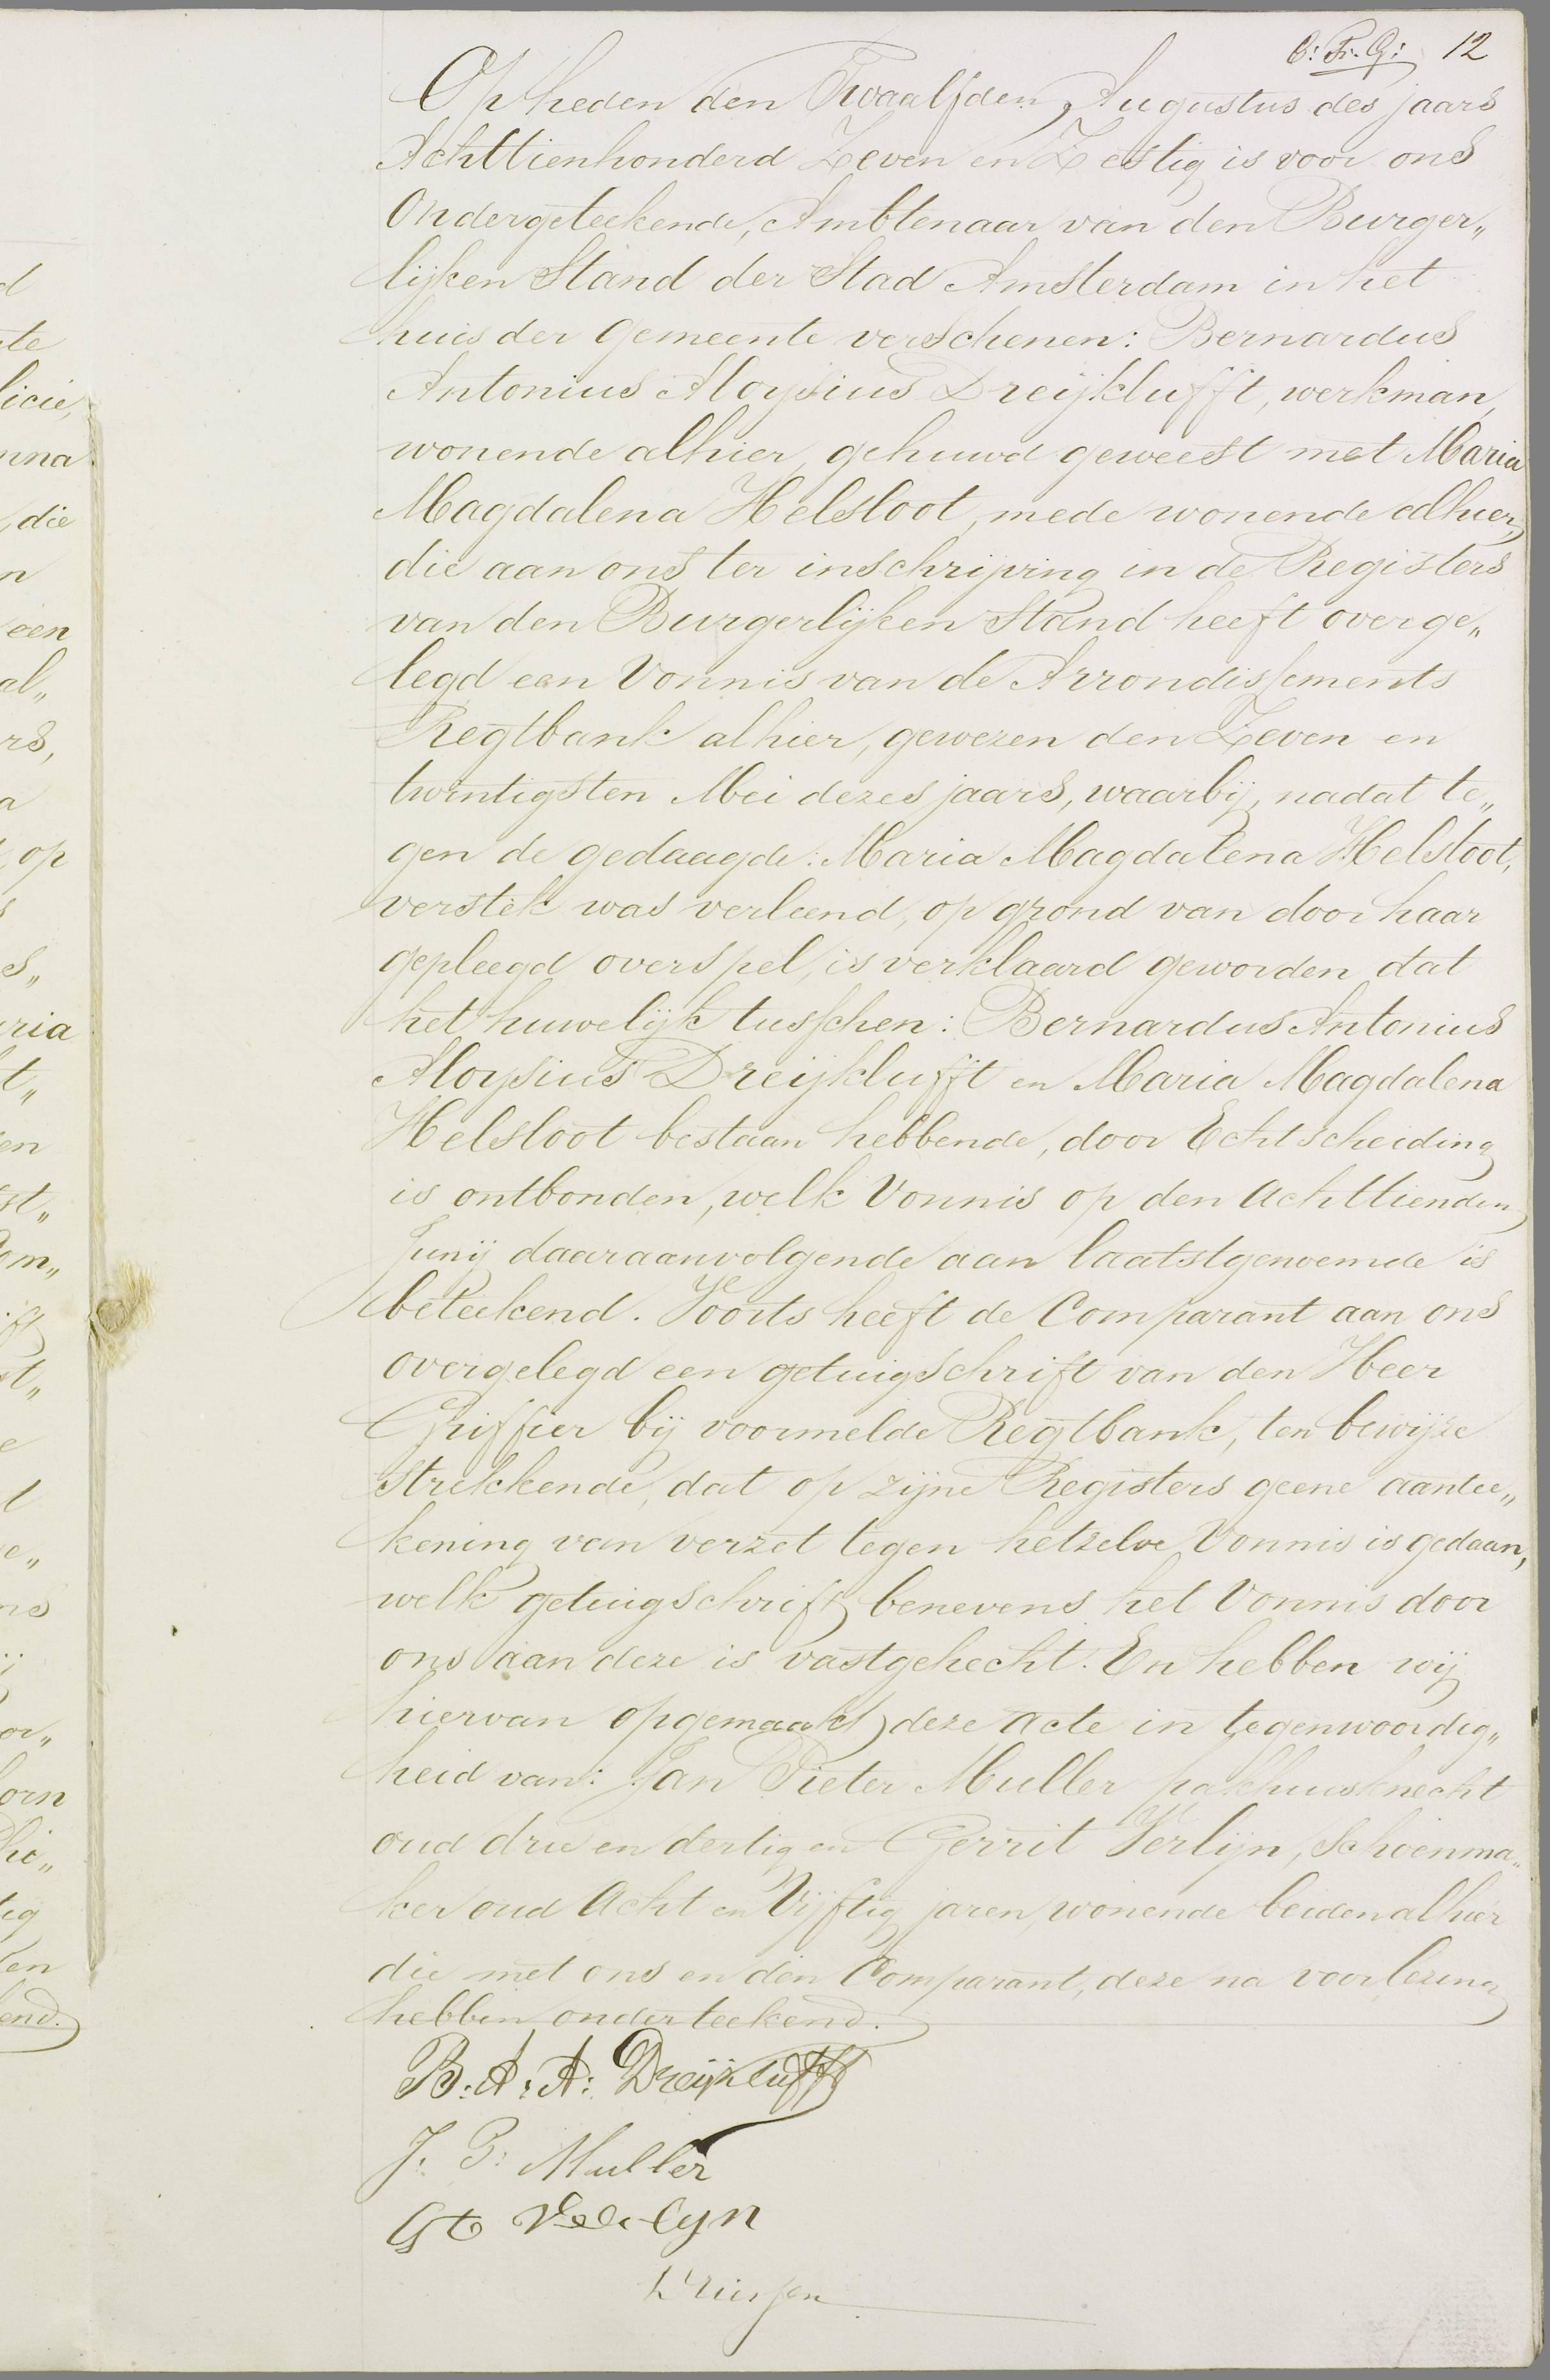 12
Op heden den Twaalfden Augustus des jaars
Achttienhonderd Zeven en Zestig is voor ons
Ondergeteekende, Ambtenaar van den Burger„
lijken Stand der Stad Amsterdam in het
huis der Gemeente verschenen: Bernardus
Antonius Aloysius Dreijklufft, werkman,
wonende alhier, gehuwd geweest met Maria
Magdalena Helsloot, mede wonende alhier,
die aan ons ter inschrijving in de Registers
van den Burgerlijken Stand heeft overge„
legd een Vonnis van de Arrondissements
Regtbank alhier, gewezen den Zeven en
twintigsten Mei dezes jaars, waarbij, nadat te„
gen de gedaagde: Maria Magdalena Helsloot,
verstek was verleend, op grond van door haar
gepleegd overspel, is verklaard geworden dat
het huwelijk tusschen: Bernardus Antonius
Aloysius Dreijklufft en Maria Magdalena
Helsloot bestaan hebbende, door Echtscheiding
is ontbonden, welk Vonnis op den Achttienden
Junij daaraanvolgende aan laatstgenoemde is
beteekend. Voorts heeft de Comparant aan ons
overgelegd een getuigschrift van den Heer
Griffier bij voormelde Regtbank, ten bewijze
strekkende, dat op zijne Registers geene aantee„
kening van verzet tegen hetzelve Vonnis is gedaan,
welk getuigschrift benevens het Vonnis door
ons aan deze is vastgehecht. En hebben wij
hiervan opgemaakt deze acte in tegenwoordig„
heid van: Jan Pieter Muller pakhuisknecht
oud drie en dertig en Gerrit Verlijn, Schoenma„
ker oud Acht en Vijftig jaren, wonende beiden alhier
die met ons en den Comparant, deze na voorlezing
hebben onderteekend.
B. A. A. Dreijklufft
J. P. Muller
Gt Verlyn